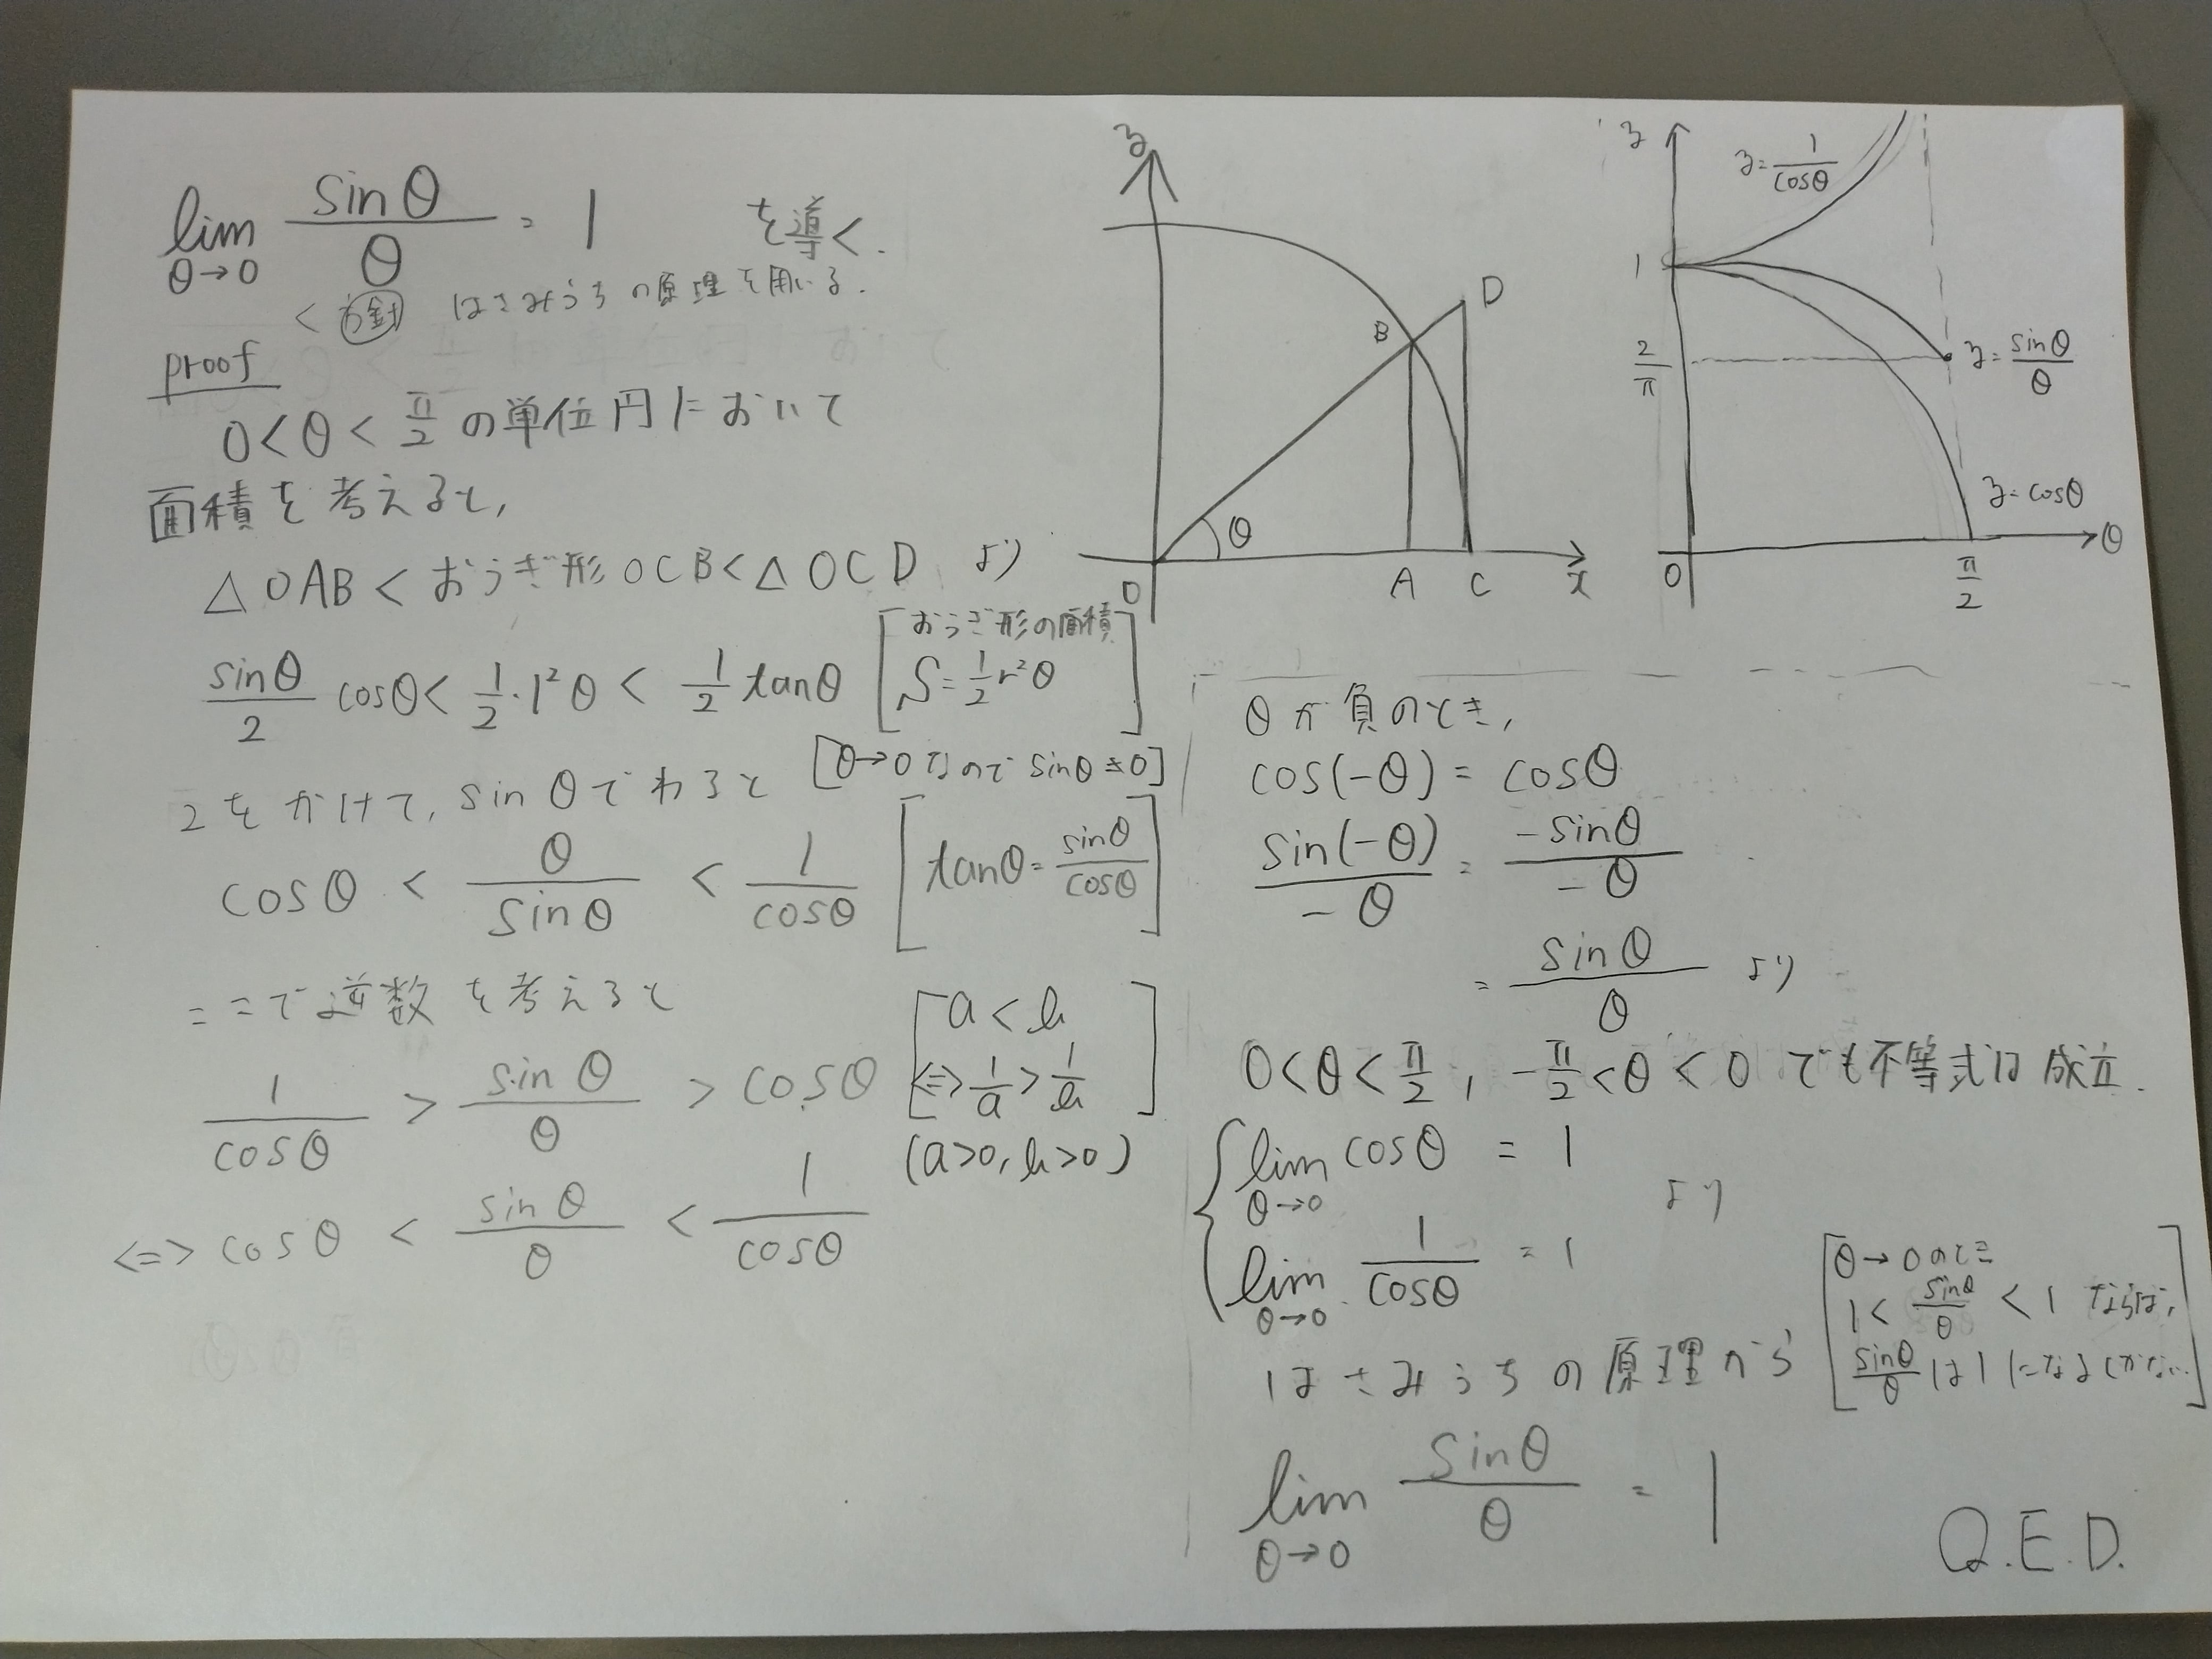 lim_{θ→0} sinθ/θ = 1 を導く.
<方針 はさみうちの原理を用いる.
proof
0<θ<π/2の単位円において
面積を考えると,
△OAB<おうぎ形OCB<△OCD より
sinθ/2 cosθ<1/2・1²θ<1/2 tanθ [おうぎ形の面積 S=1/2 r²θ]
2をかけて, sinθでわると [θ→0なので sinθ≠0]
cosθ < θ/sinθ < 1/cosθ [tanθ=sinθ/cosθ]
ここで逆数を考えると
1/cosθ > sinθ/θ > cosθ [a<b ⇔ 1/a>1/b]
(a>0, b>0)
⇔ cosθ < sinθ/θ < 1/cosθ
y
B
D
θ
O
A
C
x
y
y=1/cosθ
1
2/π
y=sinθ/θ
y=cosθ
O
π/2
θ
θが負のとき,
cos(-θ) = cosθ
sin(-θ)/-θ = -sinθ/-θ
= sinθ/θ より
0<θ<π/2, -π/2<θ<0 でも不等式は成立.
{lim_{θ→0} cosθ = 1
lim_{θ→0} 1/cosθ = 1
より
はさみうちの原理から
[θ→0のとき
1< sinθ/θ <1 ならば,
sinθ/θは1になるしかない]
lim_{θ→0} sinθ/θ = 1
Q.E.D.